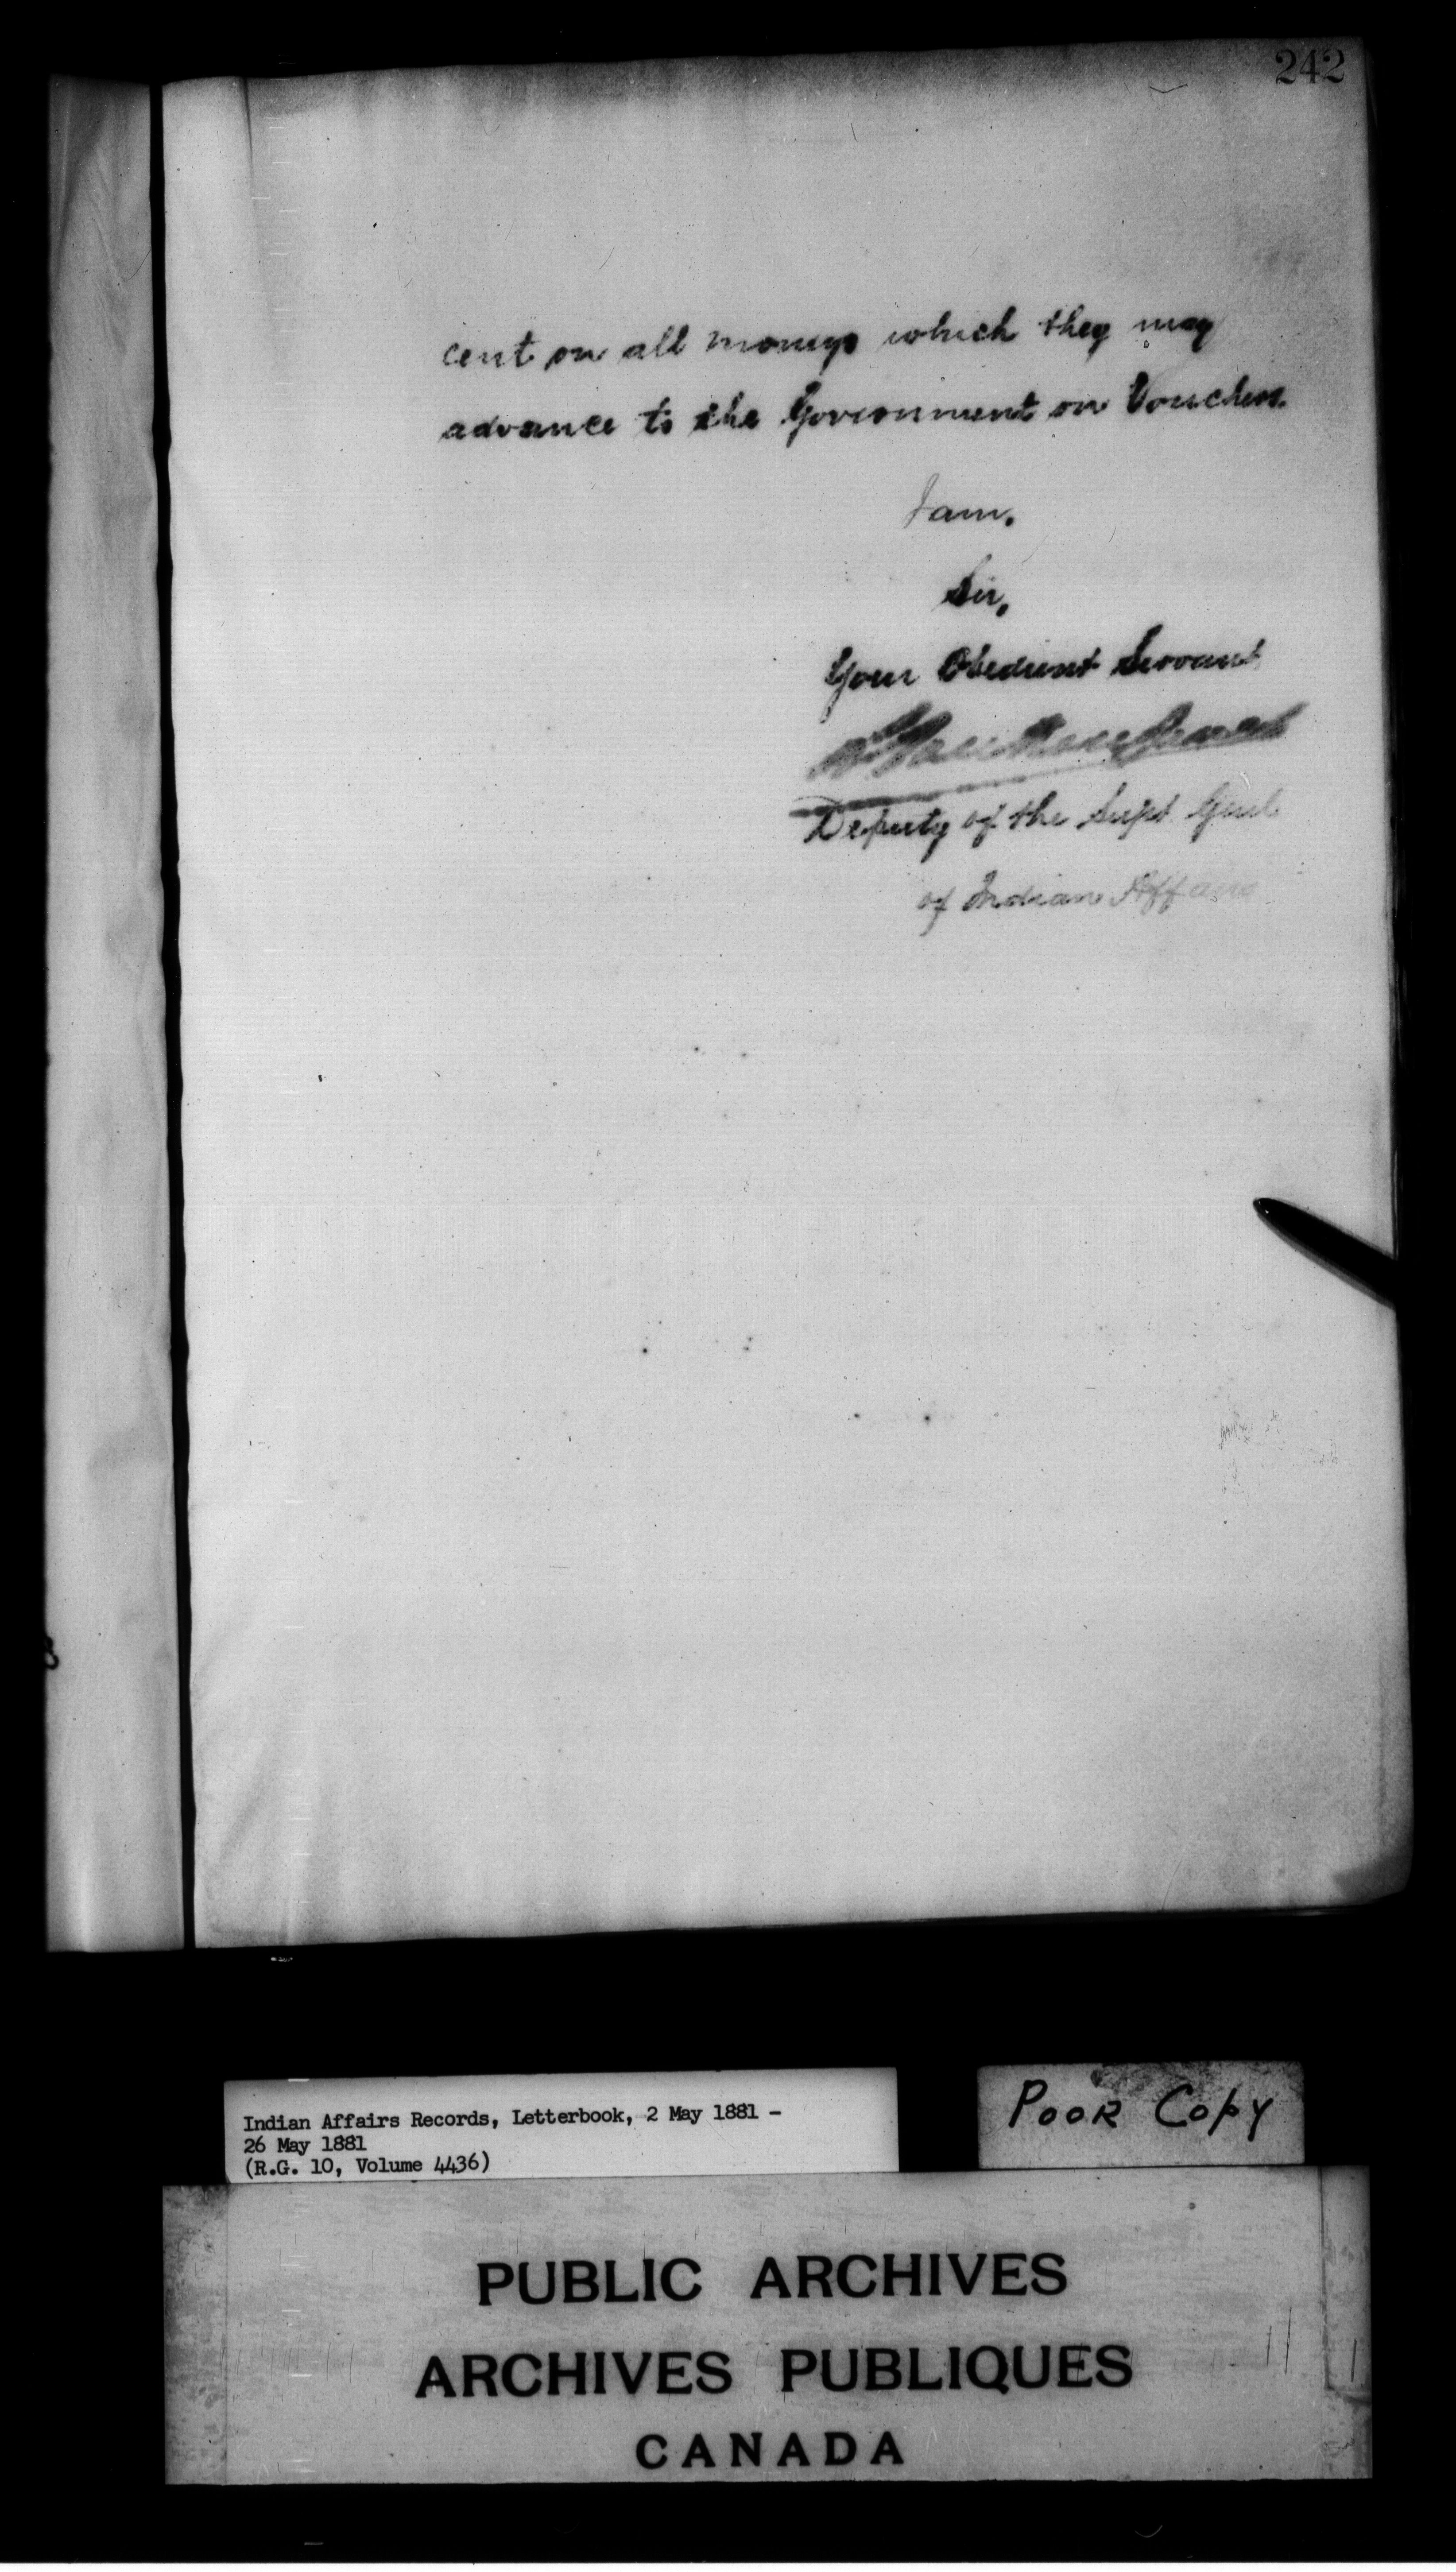 242
cent on all moneys which they may
advance to the Government on Vouchers.
I am,
Sir,
Your Obedient Servant
L. Vankoughnet
Deputy of the Supt Genl
of Indian Affairs
Indian Affairs Records, Letterbook, 2 May 1881 -
26 May 1881
(R.G. 10, Volume 4436)
POOR COPY
PUBLIC ARCHIVES
ARCHIVES PUBLIQUES
CANADA